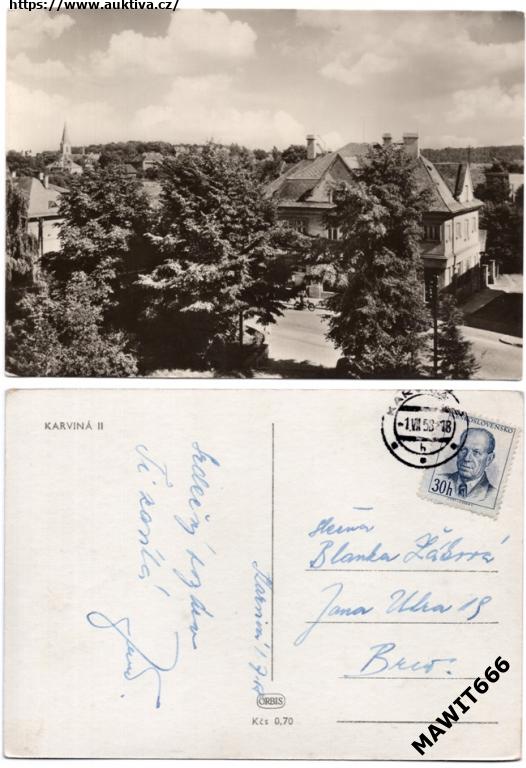 https://www.auktiva.cz/
KARVINÁ II
KARVINÁ
-1.VII 58-18
h
ČESKOSLOVENSKO
30h
Srdečný pozdrav
Ti zasílá
Karviná 1.7.58
slečna
Blanka Žáková
Jana Uhra 19
Brno.
ORBIS
Kčs 0,70
MAWIT666